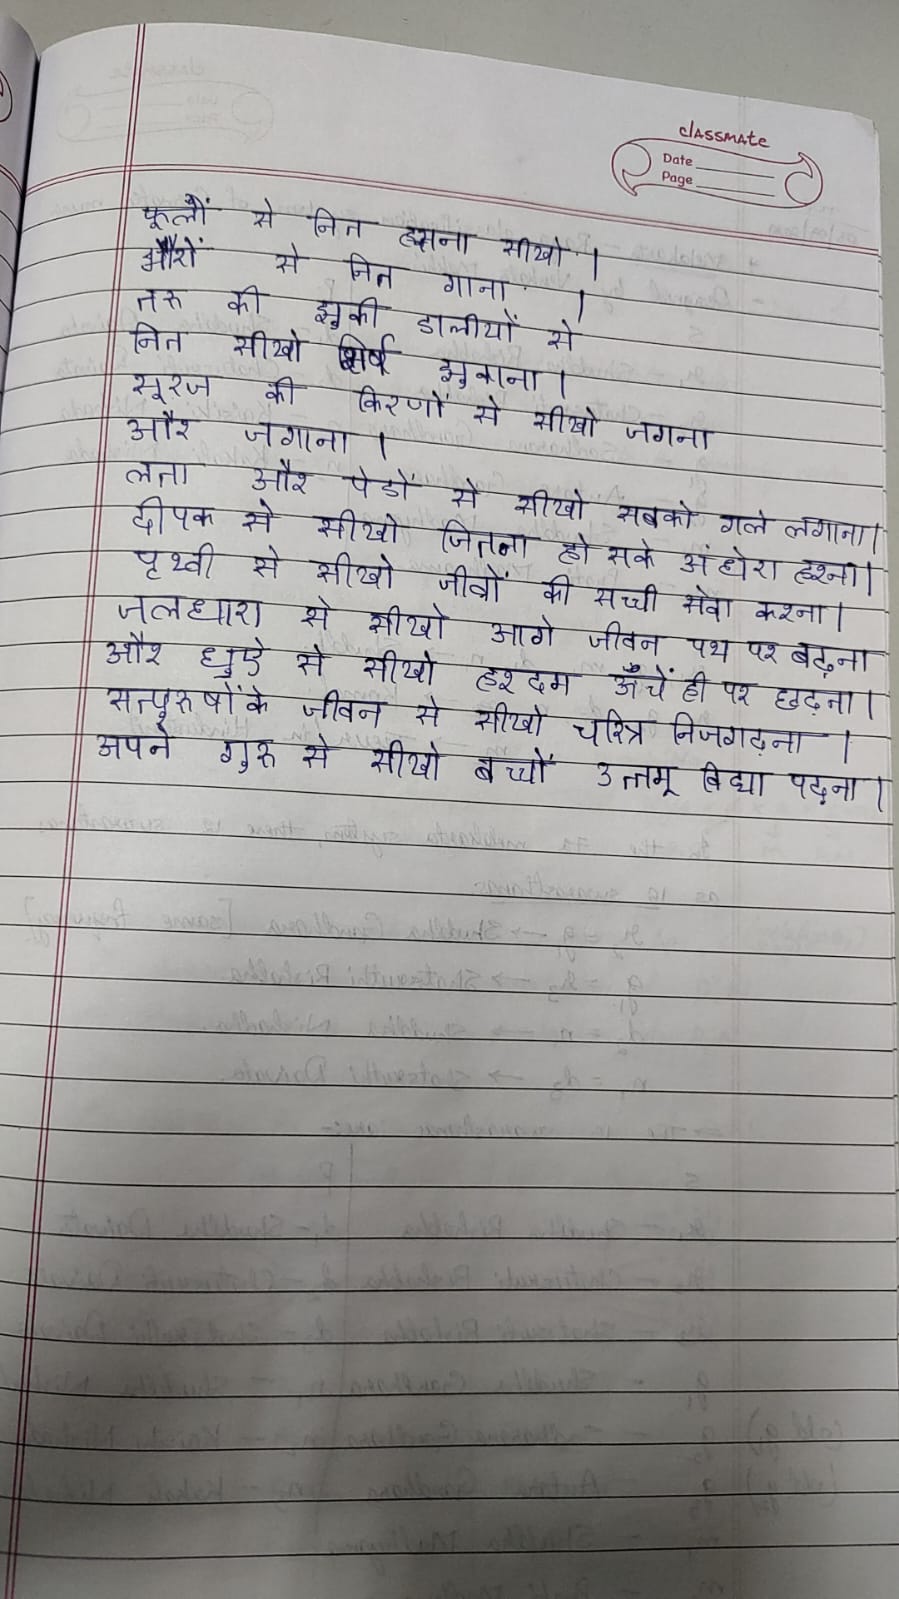 classmate
Date
Page
फूलों से नित हसना सीखो।
भौरों से नित गाना ।
तरु की झुकी डालीयों से
नित सीखो शिर्ष झुकाना।
सूरज की किरणों से सीखो जगना
और जगाना ।
लता और पेडों से सीखो सबको गले लगाना।
दीपक से सीखो जितना हो सके अंधेरा हरना।
पृथ्वी से सीखो जीवों की सच्ची सेवा करना।
जलधारा से सीखो आगे जीवन पथ पर बढ़ना
और धुएे से सीखो हरदम ऊँचें ही पर छढ़ना।
सत्पुरुषों के जीवन से सीखो चरित्र निजगढ़ना ।
अपने गुरु से सीखो बच्चों उत्तम विद्या पढ़ना।